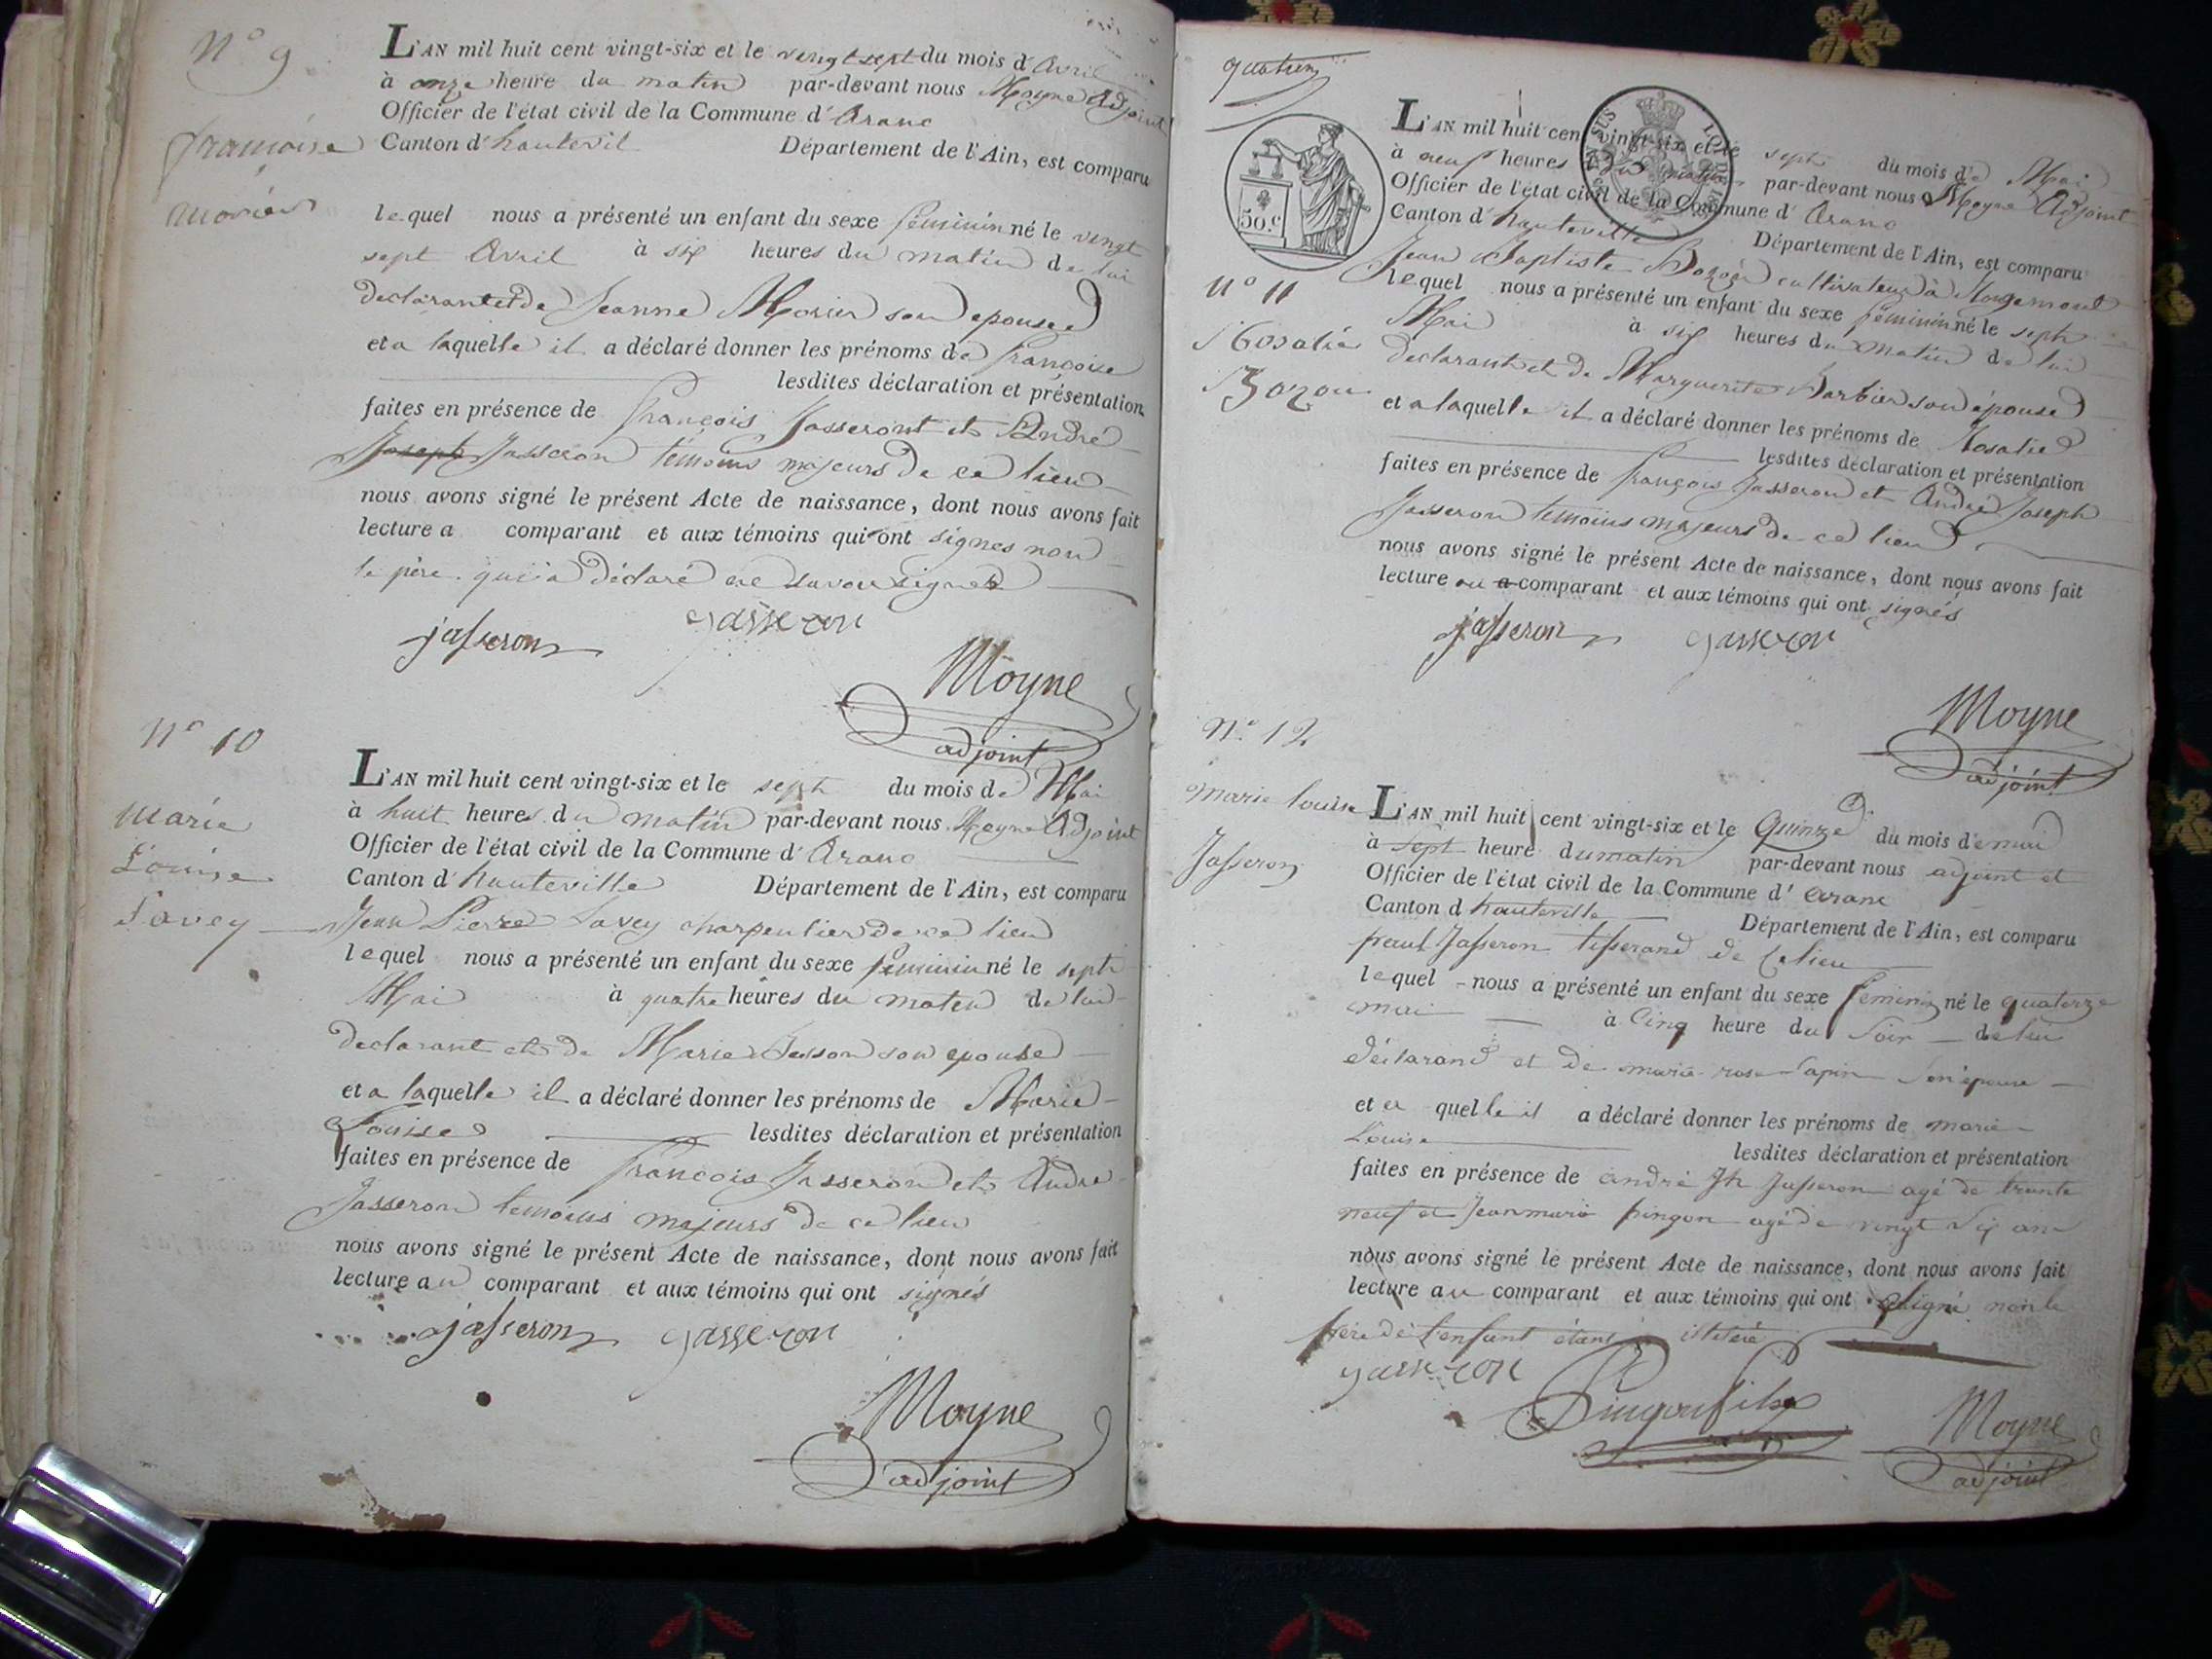 N° 9
françoise
L'AN mil huit cent vingt-six et le vingt sept du mois d'Avril
à onze heure du matin par-devant nous Moyne Adjoint
Officier de l'état civil de la Commune d'Aranc
Canton d'hautevil Département de l'Ain, est comparu
lequel nous a présenté un enfant du sexe féminin né le vingt
sept Avril à six heures du matin de lui
declarant et de Jeanne son epouse
et a laquelle il a déclaré donner les prénoms de françoise
lesdites déclaration et présentation
faites en présence de françois Jasseront et André
Joseph Jasseron témoins majeurs de ce lieu
nous avons signé le présent Acte de naissance, dont nous avons fait
lecture a comparant et aux témoins qui ont signés non
le père qui a déclaré ne savoir signer
jasseron gasseron
Moyne
adjoint
N° 10
Marie
Louise
Savey
L'AN mil huit cent vingt-six et le sept du mois de Mai
à huit heures du matin par-devant nous Moyne Adjoint
Officier de l'état civil de la Commune d'Aranc
Canton d'hauteville Département de l'Ain, est comparu
Jean Pierre Savey charpentier de ce lieu
lequel nous a présenté un enfant du sexe féminin né le sept
Mai à quatre heures du matin de lui
declarant et de Marie son epouse
et a laquelle il a déclaré donner les prénoms de Marie
Louise lesdites déclaration et présentation
faites en présence de françois Jasseron et André
Jasseron temoins majeurs de ce lieu
nous avons signé le présent Acte de naissance, dont nous avons fait
lecture au comparant et aux témoins qui ont signés
jasseron gasseron
Moyne
adjoint
50.c
L'AN mil huit cent vingt-six et le sept du mois de Mai
à neuf heures du matin par-devant nous Moyne Adjoint
Officier de l'état civil de la Commune d'Aranc
Canton d'hauteville Département de l'Ain, est comparu
Jean Baptiste Bozon cultivateur à
N° 11
Rosalie
Bozon
lequel nous a présenté un enfant du sexe féminin né le sept
Mai à six heures du matin de lui
declarant et de Marguerite Barbier son épouse
et a laquelle il a déclaré donner les prénoms de Rosalie
lesdites déclaration et présentation
faites en présence de françois Jasseron et André Joseph
Jasseron temoins majeurs de ce lieu
nous avons signé le présent Acte de naissance, dont nous avons fait
lecture au comparant et aux témoins qui ont signés
jasseron gasseron
Moyne
adjoint
N° 12
marie louise
Jasseron
L'AN mil huit cent vingt-six et le Quinze du mois de mai
à sept heure du matin par-devant nous adjoint et
Officier de l'état civil de la Commune d'aranc
Canton d hauteville Département de l'Ain, est comparu
paul Jasseron tisserand de ce lieu
lequel nous a présenté un enfant du sexe feminin né le quatorze
mai à Cinq heure du Soir de lui
déclarand et de marie rose Sapin Son épouse
et a quelle il a déclaré donner les prénoms de marie
Louise lesdites déclaration et présentation
faites en présence de andré Jh Jasseron agé de trente
neuf et Jean marie pingon agé de vingt Six ans
nous avons signé le présent Acte de naissance, dont nous avons fait
lecture au comparant et aux témoins qui ont signé non le
père de l'enfant étant illitéré
gasseron
Pingon fils
Moyne
adjoint